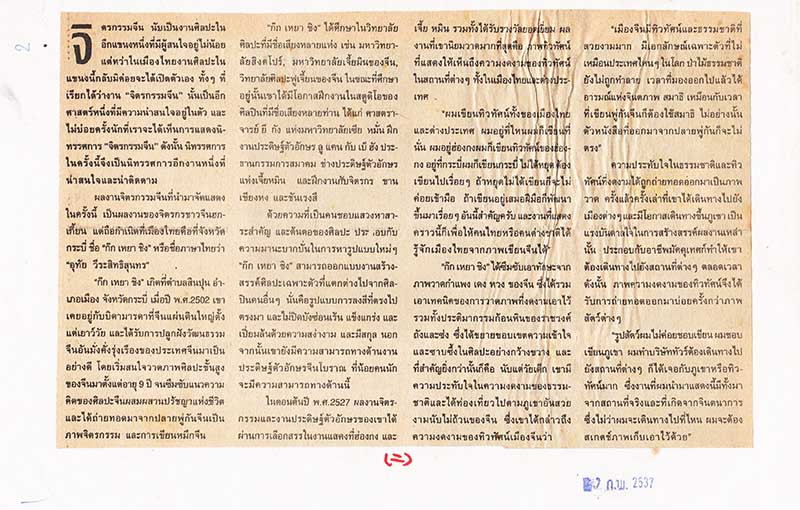 จิตรกรรมจีน นับเป็นงานศิลปะใน
อีกแขนงหนึ่งที่มีผู้สนใจอยู่ไม่น้อย
แต่ทว่าในเมืองไทยงานศิลปะใน
แขนงนี้กลับมีค่อยจะได้เปิดตัวเอง ทั้งๆ ที่
เรียกได้ว่างาน “จิตรกรรมจีน” นั้นเป็นอีก
ศาสตร์หนึ่งที่มีความน่าสนใจอยู่ในตัว และ
ไม่บ่อยครั้งนักที่เราจะได้เห็นการแสดงนิ-
ทรรศการ “จิตรกรรมจีน” ดังนั้น นิทรรศการ
ในครั้งนี้จึงเป็นนิทรรศการอีกงานหนึ่งที่
น่าสนใจและน่าติดตาม
ผลงานจิตรกรรมจีนที่นำมาจัดแสดง
ในครั้งนี้ เป็นผลงานของจิตรกรชาวจีนฮก-
เกี้ยน แต่ถือกำเนิดที่เมืองไทยคือที่จังหวัด
กระบี่ ชื่อ “กีก เหยา ชิง” หรือชื่อภาษาไทยว่า
“อุทัย วีระสิทธิสุนทร”
“กีก เหยา ชิง” เกิดที่ตำบลสินปุน อำ-
เภอเมือง จังหวัดกระบี่ เมื่อปี พ.ศ.2502 เขา
เคยอยู่กับบิดามารดาที่จีนแผ่นดินใหญ่ตั้ง
แต่เยาว์วัย และได้รับการปลูกฝังวัฒนธรรม
จีนอันมั่งคั่งรุ่งเรืองของประเทศจีนมาเป็น
อย่างดี โดยเริ่มสนใจวาดภาพศิลปะชั้นสูง
ของจีนมาตั้งแต่อายุ 9 ปี จนซึมซับแนวความ
คิดของศิลปะจีนผสมผสานปรัชญาแห่งชีวิต
และได้ถ่ายทอดมาจากปลายพู่กันจีนเป็น
ภาพจิตรกรรม และการเขียนหมึกจีน
“กีก เหยา ชิง” ได้ศึกษาในวิทยาลัย
ศิลปะที่มีชื่อเสียงหลายแห่ง เช่น มหาวิทยา-
ลัยสิงคโปร์, มหาวิทยาลัยเจี้ยมินของจีน,
วิทยาลัยศิลปะฟูเจี้ยนของจีน ในขณะที่ศึกษา
อยู่นั้นเขาได้มีโอกาสฝึกงานในสตูดิโอของ
ศิลปินที่มีชื่อเสียงหลายท่าน ได้แก่ ศาสตรา-
จารย์ ยี กัง แห่งมหาวิทยาลัยเซีย หมัน ฝึก
งานประดิษฐ์ตัวอักษร ลู แคน กับ เบ้ ฮัง ประ-
ธานกรรมการสมาคม ช่างประดิษฐ์ตัวอักษร
แห่งเจี้ยหมิน และฝึกงานกับจิตรกร ชาน
เชียงหง และชันเรงสี
ด้วยความที่เป็นคนชอบแสวงหาสา-
ระสำคัญ และต้นตอของศิลปะ ประกอบกับ
ความมานะบากบั่นในการหารูปแบบใหม่ๆ
“กีก เหยา ชิง” สามารถออกแบบงานสร้าง-
สรรค์ศิลปะเฉพาะตัวที่แตกต่างไปจากศิล-
ปินคนอื่นๆ นั่นคือรูปแบบการลงสีที่ตรงไป
ตรงมา และไม่ปิดบังซ่อนเร้น แข็งแกร่ง และ
เปี่ยมล้นด้วยความสง่างาม และมีสกุล นอก
จากนั้นเขายังมีความสามารถทางด้านงาน
ประดิษฐ์ตัวอักษรจีนโบราณ ที่น้อยคนนัก
จะมีความสามารถทางด้านนี้
ในตอนต้นปี พ.ศ.2527 ผลงานจิตร-
กรรมและงานประดิษฐ์ตัวอักษรของเขาได้
ผ่านการเลือกสรรในงานแสดงที่ฮ่องกง และ
เจี้ย หมิน รวมทั้งได้รับรางวัลยอดเยี่ยม ผล
งานที่เขานิยมวาดมากที่สุดคือ ภาพทิวทัศน์
ที่แสดงให้เห็นถึงความงดงามของทิวทัศน์
ในสถานที่ต่างๆ ทั้งในเมืองไทยและต่างประ-
เทศ
“ผมเขียนทิวทัศน์ทั้งของเมืองไทย
และต่างประเทศ ผมอยู่ที่ไหนผมก็เขียนที่
นั่น ผมอยู่ฮ่องกงผมก็เขียนทิวทัศน์ของฮ่อง-
กง อยู่ที่กระบี่ผมก็เขียนกระบี่ ไม่ได้หยุด ต้อง
เขียนไปเรื่อยๆ ถ้าหยุดไม่ได้เขียนก็จะไม่
ค่อยเข้ามือ ถ้าเขียนอยู่เสมอฝีมือก็พัฒนา
ขึ้นมาเรื่อยๆ อันนี้สำคัญครับ และงานที่แสดง
คราวนี้ก็เพื่อให้คนไทยหรือคนต่างชาติได้
รู้จักเมืองไทยจากภาพเขียนจีนได้”
“กีก เหยา ชิง” ได้ซึมซับเอาทักษะจาก
ภาพวาดกำแพง เดง หวง ของจีน ซึ่งได้รวม
เอาเทคนิคของการวาดภาพที่งดงามเอาไว้
รวมทั้งประติมากรรมก้อนหินของราชวงศ์
ถังและซ่ง ซึ่งได้ขยายขอบเขตความเข้าใจ
และซาบซึ้งในศิลปะอย่างกว้างขวาง และ
ที่สำคัญยิ่งกว่านั้นก็คือ นับแต่วัยเด็ก เขามี
ความประทับใจในความงดงามของธรรม-
ชาติและได้ท่องเที่ยวไปตามภูเขาอันสวย
งามนับไม่ถ้วนของจีน ซึ่งเขาได้กล่าวถึง
ความงดงามของทิวทัศน์เมืองจีนว่า
“เมืองจีนมีทิวทัศน์และธรรมชาติที่
สวยงามมาก มีเอกลักษณ์เฉพาะตัวที่ไม่
เหมือนประเทศไหนๆ ในโลก ป่าไม้ธรรมชาติ
ยังไม่ถูกทำลาย เวลาที่มองออกไปแล้วได้
อารมณ์แห่งจินตภาพ สมาธิ เหมือนกับเวลา
ที่เขียนพู่กันจีนก็ต้องใช้สมาธิ ไม่อย่างนั้น
ตัวหนังสือที่ออกมาจากปลายพู่กันก็จะไม่
ตรง”
ความประทับใจในธรรมชาติและทิว
ทัศน์ที่งดงามได้ถูกถ่ายทอดออกมาเป็นภาพ
วาด ครั้งแล้วครั้งเล่าที่เขาได้เดินทางไปยัง
เมืองต่างๆ และมีโอกาสเดินทางขึ้นภูเขา เป็น
แรงบันดาลใจในการสร้างสรรค์ผลงานเหล่า
นั้น ประกอบกับอาชีพมัคคุเทศก์ทำให้เขา
ต้องเดินทางไปยังสถานที่ต่างๆ ตลอดเวลา
ดังนั้น ภาพความงดงามของทิวทัศน์จึงได้
รับการถ่ายทอดออกมาบ่อยครั้งกว่าภาพ
สัตว์ต่างๆ
“รูปสัตว์ผมไม่ค่อยชอบเขียน ผมชอบ
เขียนภูเขา ผมทำบริษัททัวร์ต้องเดินทางไป
ยังสถานที่ต่างๆ ก็ได้เจอกับภูเขาหรือทิว-
ทัศน์มาก ซึ่งงานที่ผมนำมาแสดงนี้มีทั้งมา
จากสถานที่จริงและที่เกิดจากจินตนาการ
ซึ่งไม่ว่าผมจะเดินทางไปที่ไหน ผมจะต้อง
สเกตช์ภาพเก็บเอาไว้ด้วย”
2
(=)
ก.พ. 2537